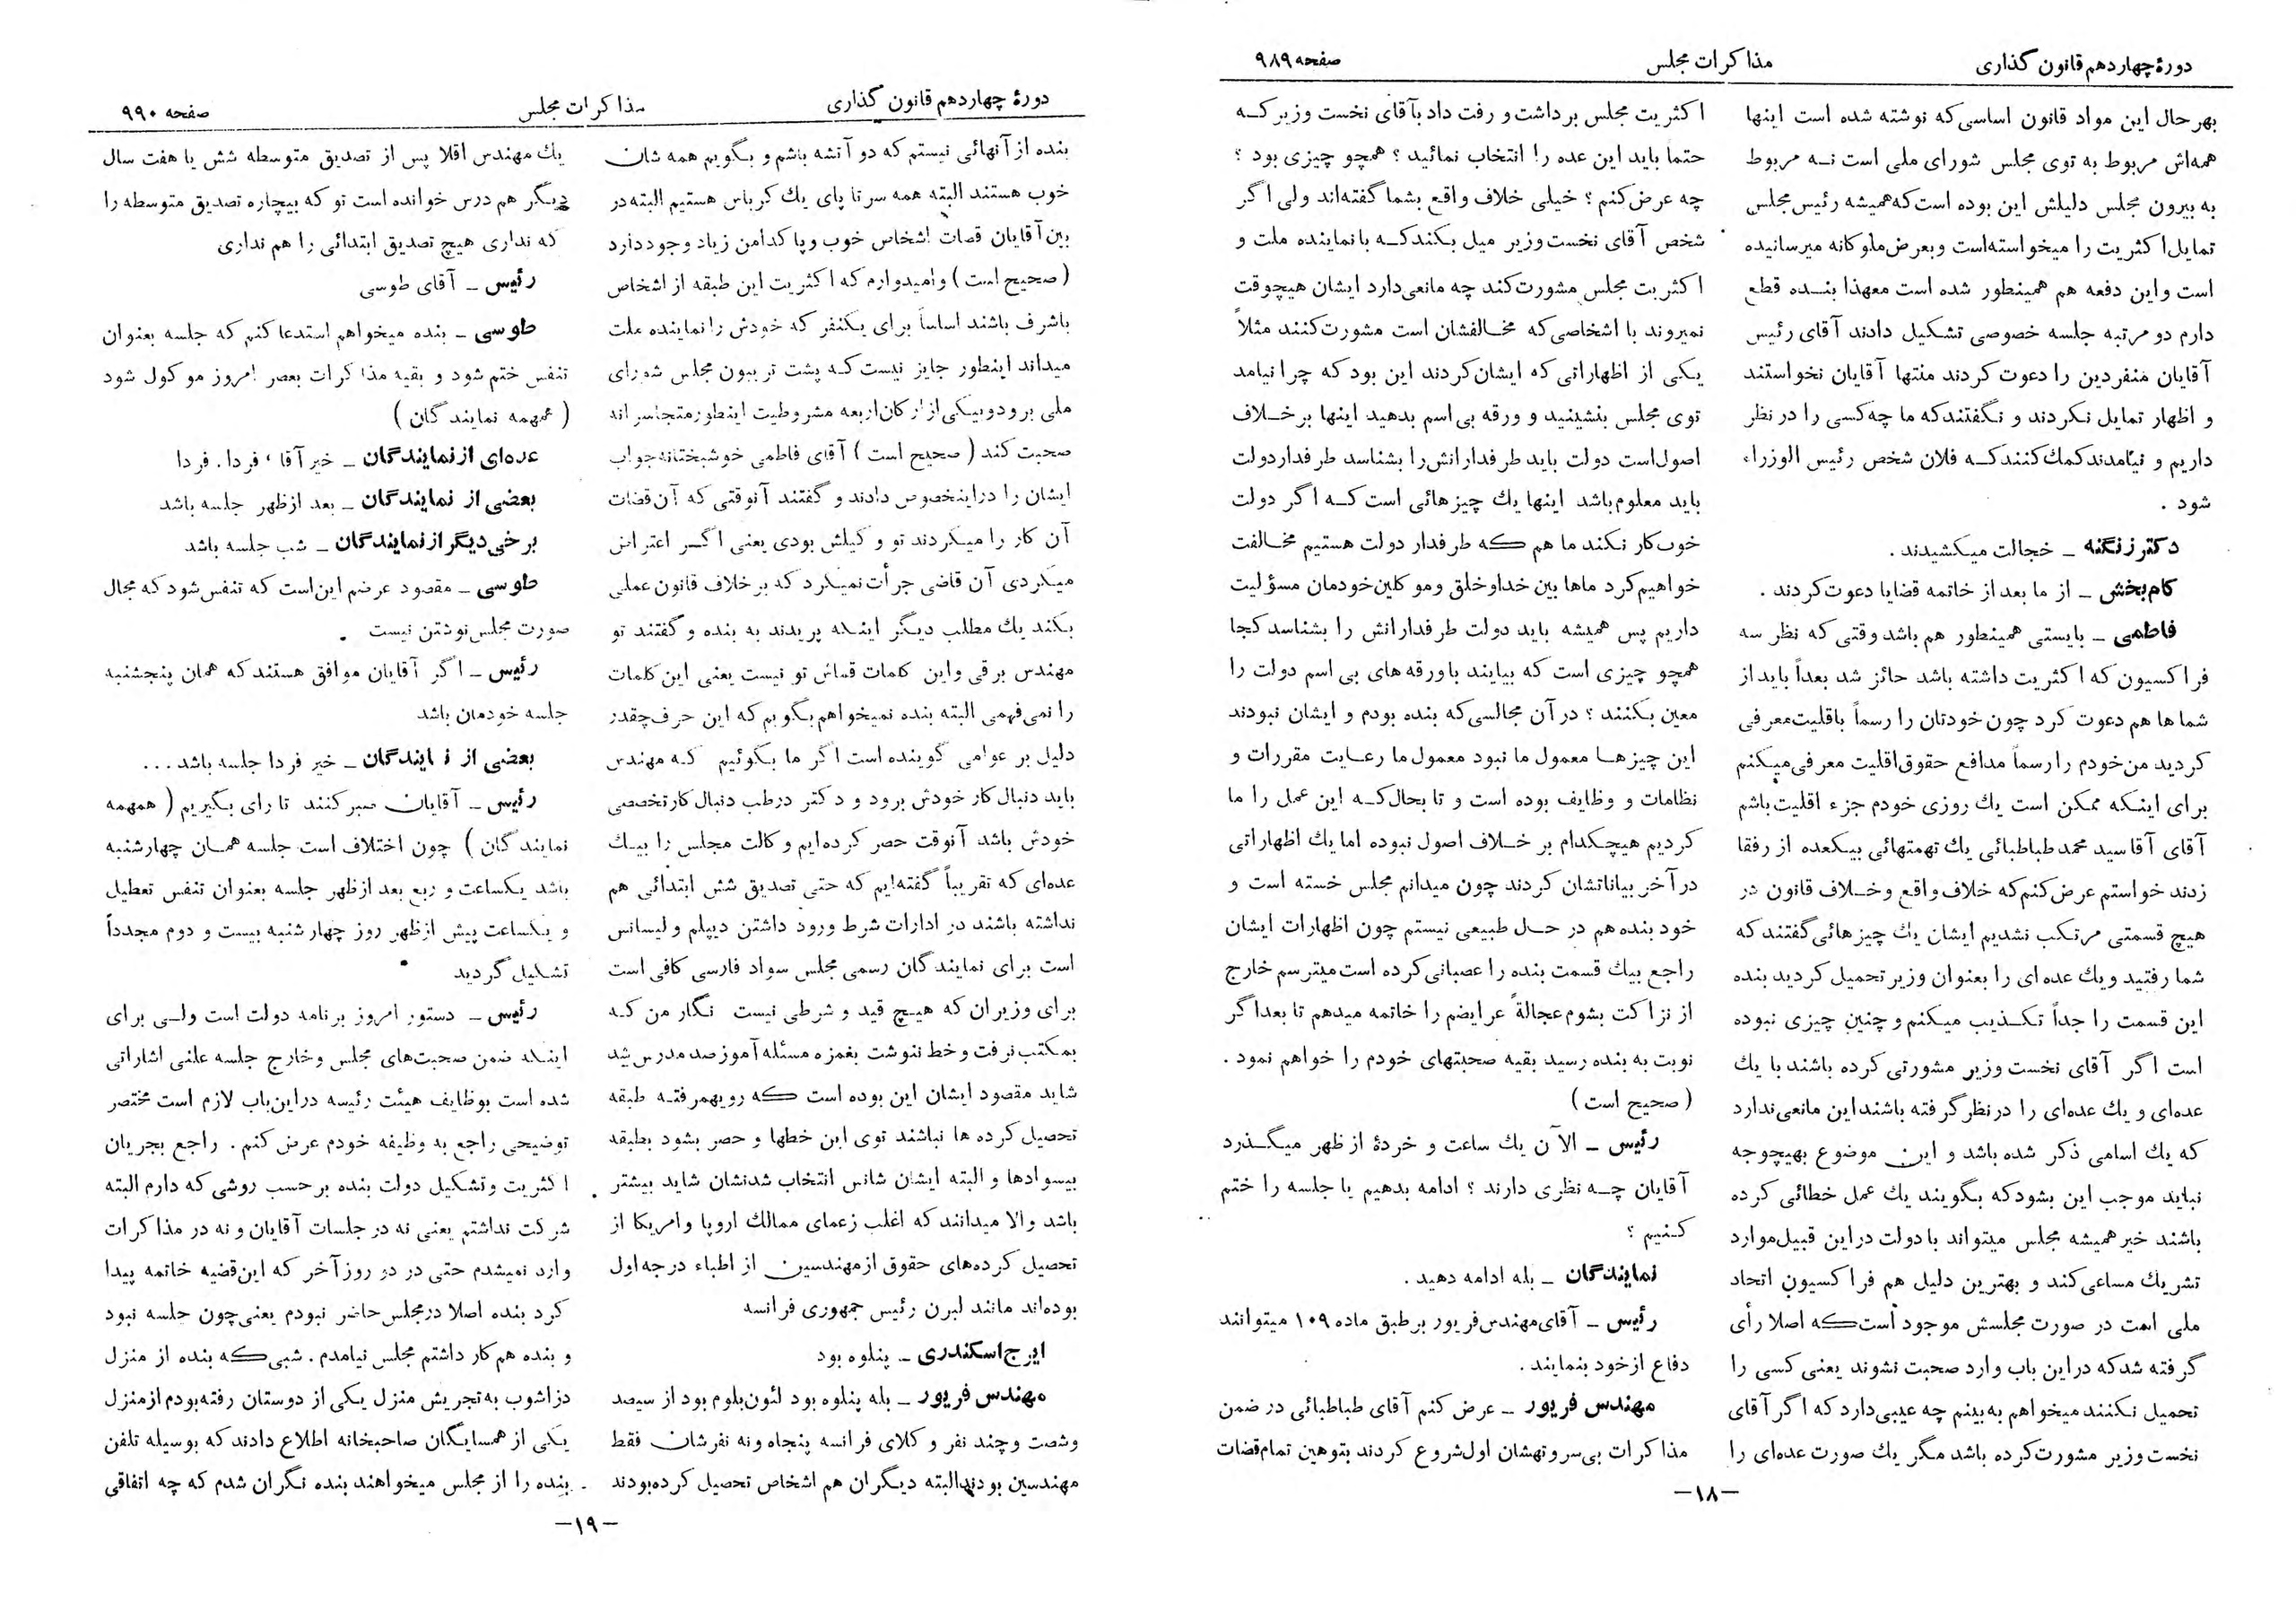 دورهٔ چهاردهم قانون گذاری
مذاکرات مجلس
صفحه ۹۸۹
بهر حال این مواد قانون اساسی که نوشته شده است اینها
همه‌اش مربوط به توی مجلس شورای ملی است نه مربوط
به بیرون مجلس دلیلش این بوده است که همیشه رئیس مجلس
تمایل اکثریت را میخواسته‌است و بعرض ملوکانه میرسانیده
است و این دفعه هم همینطور شده است معهذا بنده قطع
دارم دو مرتبه جلسه خصوصی تشکیل دادند آقای رئیس
آقایان منفردین را دعوت کردند منتها آقایان نخواستند
و اظهار تمایل نکردند و نگفتند که ما چه کسی را در نظر
داریم و نیامدند کمك کنند که فلان شخص رئیس الوزراء
شود .
دکتر زنگنه ـ خجالت میکشیدند .
کام‌بخش ـ از ما بعد از خاتمه قضایا دعوت کردند .
فاطمی ـ بایستی همینطور هم باشد وقتی که نظر سه
فراکسیون که اکثریت داشته باشد حائز شد بعداً باید از
شما ها هم دعوت کرد چون خودتان را رسماً باقلیت معرفی
کردید من خودم را رسماً مدافع حقوق اقلیت معرفی میکنم
برای اینکه ممکن است یك روزی خودم جزء اقلیت باشم
آقای آقا سید محمد طباطبائی یك تهمتهائی بیکعده از رفقا
زدند خواستم عرض کنم که خلاف واقع و خلاف قانون در
هیچ قسمتی مرتکب نشدیم ایشان یك چیزهائی گفتند که
شما رفتید و یك عده ای را بعنوان وزیر تحمیل کردید بنده
این قسمت را جداً تکذیب میکنم و چنین چیزی نبوده
است اگر آقای نخست وزیر مشورتی کرده باشند با یك
عده‌ای و یك عده‌ای را در نظر گرفته باشند این مانعی ندارد
که یك اسامی ذکر شده باشد و این موضوع بهیچوجه
نباید موجب این بشود که بگویند یك عمل خطائی کرده
باشند خیر همیشه مجلس میتواند با دولت در این قبیل موارد
تشریك مساعی کند و بهترین دلیل هم فراکسیون اتحاد
ملی است در صورت مجلسش موجود است که اصلا رأی
گرفته شد که در این باب وارد صحبت نشوند یعنی کسی را
تحمیل نکنند میخواهم به بینم چه عیبی دارد که اگر آقای
نخست وزیر مشورت کرده باشد مگر یك صورت عده‌ای را
اکثریت مجلس برداشت و رفت داد بآقای نخست وزیر که
حتما باید این عده را انتخاب نمائید ؟ همچو چیزی بود ؟
چه عرض کنم ؟ خیلی خلاف واقع بشما گفته‌اند ولی اگر
شخص آقای نخست وزیر میل بکند که با نماینده ملت و
اکثریت مجلس مشورت کند چه مانعی دارد ایشان هیچوقت
نمیروند با اشخاصی که مخالفشان است مشورت کنند مثلاً
یکی از اظهاراتی که ایشان کردند این بود که چرا نیامد
توی مجلس بنشینید و ورقه بی اسم بدهید اینها برخلاف
اصول است دولت باید طرفدارانش را بشناسد طرفدار دولت
باید معلوم باشد اینها یك چیزهائی است که اگر دولت
خوب کار نکند ما هم که طرفدار دولت هستیم مخالفت
خواهیم کرد ماها بین خدا و خلق و موکلین خودمان مسؤلیت
داریم پس همیشه باید دولت طرفدارانش را بشناسد کجا
همچو چیزی است که بیایند با ورقه های بی اسم دولت را
معین بکنند ؟ در آن مجالسی که بنده بودم و ایشان نبودند
این چیزها معمول ما نبود معمول ما رعایت مقررات و
نظامات و وظایف بوده است و تا بحال که این عمل را ما
کردیم هیچکدام بر خلاف اصول نبوده اما یك اظهاراتی
در آخر بیاناتشان کردند چون میدانم مجلس خسته است و
خود بنده هم در حال طبیعی نیستم چون اظهارات ایشان
راجع بیك قسمت بنده را عصبانی کرده است میترسم خارج
از نزاکت بشوم عجالةً عرایضم را خاتمه میدهم تا بعد اگر
نوبت به بنده رسید بقیه صحبتهای خودم را خواهم نمود .
( صحیح است )
رئیس ـ الآن یك ساعت و خردهٔ از ظهر میگذرد
آقایان چه نظری دارند ؟ ادامه بدهیم یا جلسه را ختم
کنیم ؟
نمایندگان ـ بله ادامه دهید .
رئیس ـ آقای مهندس فریور برطبق ماده ۱۰۹ میتوانند
دفاع از خود بنمایند .
مهندس فریور ـ عرض کنم آقای طباطبائی در ضمن
مذاکرات بی‌سروتهشان اول شروع کردند بتوهین تمام قضات
ـ۱۸ـ
دورهٔ چهاردهم قانون گذاری
مذاکرات مجلس
صفحه ۹۹۰
بنده از آنهائی نیستم که دو آتشه باشم و بگویم همه شان
خوب هستند البته همه سر تا پای یك کرباس هستیم البته در
بین آقایان قضات اشخاص خوب و پاکدامن زیاد وجود دارد
( صحیح است ) و امیدوارم که اکثریت این طبقه از اشخاص
باشرف باشند اساساً برای یکنفر که خودش را نماینده ملت
میداند اینطور جایز نیست که پشت تریبون مجلس شورای
ملی برود و بیکی از ارکان اربعه مشروطیت اینطور متجاسرانه
صحبت کند ( صحیح است ) آقای فاطمی خوشبختانه جواب
ایشان را در اینخصوص دادند و گفتند آنوقتی که آن قضات
آن کار را میکردند تو وکیلش بودی یعنی اگر اعتراض
میکردی آن قاضی جرأت نمیکرد که بر خلاف قانون عملی
بکند یك مطلب دیگر اینکه پریدند به بنده و گفتند تو
مهندس برقی و این کلمات قماش تو نیست یعنی این کلمات
را نمی‌فهمی البته بنده نمیخواهم بگویم که این حرف چقدر
دلیل بر عوامی گوینده است اگر ما بگوئیم که مهندس
باید دنبال کار خودش برود و دکتر در طب دنبال کار تخصصی
خودش باشد آنوقت حصر کرده‌ایم وکالت مجلس را بیك
عده‌ای که تقریباً گفته‌ایم که حتی تصدیق شش ابتدائی هم
نداشته باشند در ادارات شرط ورود داشتن دیپلم و لیسانس
است برای نمایندگان رسمی مجلس سواد فارسی کافی است
برای وزیران که هیچ قید و شرطی نیست نگار من که
بمکتب نرفت و خط ننوشت بغمزه مسئله آموز صد مدرس شد
شاید مقصود ایشان این بوده است که رویهمرفته طبقه
تحصیل کرده ها نباشند توی این خطها و حصر بشود بطبقه
بیسوادها و البته ایشان شانس انتخاب شدنشان شاید بیشتر
باشد والا میدانند که اغلب زعمای ممالك اروپا و امریکا از
تحصیل کرده‌های حقوق از مهندسین از اطباء درجه اول
بوده‌اند مانند لبرن رئیس جمهوری فرانسه
ایرج اسکندری ـ پنلوه بود
مهندس فریور ـ بله پنلوه بود لئون بلوم بود از سیصد
و شصت و چند نفر وکلای فرانسه پنجاه و نه نفرشان فقط
مهندسین بودند البته دیگران هم اشخاص تحصیل کرده بودند
یك مهندس اقلا پس از تصدیق متوسطه شش یا هفت سال
دیگر هم درس خوانده است تو که بیچاره تصدیق متوسطه را
که نداری هیچ تصدیق ابتدائی را هم نداری
رئیس ـ آقای طوسی
طوسی ـ بنده میخواهم استدعا کنم که جلسه بعنوان
تنفس ختم شود و بقیه مذاکرات بعصر امروز موکول شود
( همهمه نمایندگان )
عده‌ای از نمایندگان ـ خیر آقا ، فردا . فردا
بعضی از نمایندگان ـ بعد از ظهر جلسه باشد
برخی دیگر از نمایندگان ـ شب جلسه باشد
طوسی ـ مقصود عرضم این است که تنفس شود که مجال
صورت مجلس نوشتن نیست .
رئیس ـ اگر آقایان موافق هستند که همان پنجشنبه
جلسه خودمان باشد
بعضی از نمایندگان ـ خیر فردا جلسه باشد ...
رئیس ـ آقایان صبر کنند تا رای بگیریم ( همهمه
نمایندگان ) چون اختلاف است جلسه همان چهارشنبه
باشد یکساعت و ربع بعد از ظهر جلسه بعنوان تنفس تعطیل
و یکساعت پیش از ظهر روز چهار شنبه بیست و دوم مجدداً
تشکیل گردید
رئیس ـ دستور امروز برنامه دولت است ولی برای
اینکه ضمن صحبت‌های مجلس و خارج جلسه علنی اشاراتی
شده است بوظایف هیئت رئیسه در این باب لازم است مختصر
توضیحی راجع به وظیفه خودم عرض کنم . راجع بجریان
اکثریت و تشکیل دولت بنده بر حسب روشی که دارم البته
شرکت نداشتم یعنی نه در جلسات آقایان و نه در مذاکرات
وارد نمیشدم حتی در دو روز آخر که این قضیه خاتمه پیدا
کرد بنده اصلا در مجلس حاضر نبودم یعنی چون جلسه نبود
و بنده هم کار داشتم مجلس نیامدم . شبی که بنده از منزل
دزاشوب به تجریش منزل یکی از دوستان رفته بودم از منزل
یکی از همسایگان صاحبخانه اطلاع دادند که بوسیله تلفن
بنده را از مجلس میخواهند بنده نگران شدم که چه اتفاقی
ـ۱۹ـ